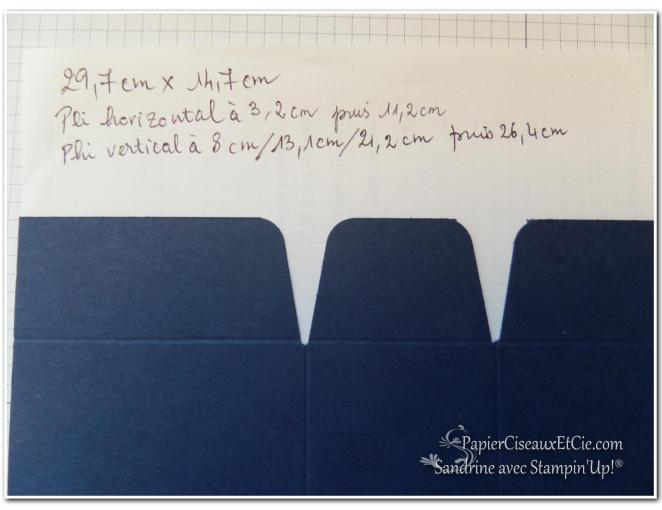 29,7cm x 14,7cm
Pli horizontal à 3,2cm puis 11,2cm
Phi vertical à 8 cm/13,1cm/21,2cm puis 26,4cm
PapierCiseauxEtCie.com
Sandrine avec Stampin'Up!®